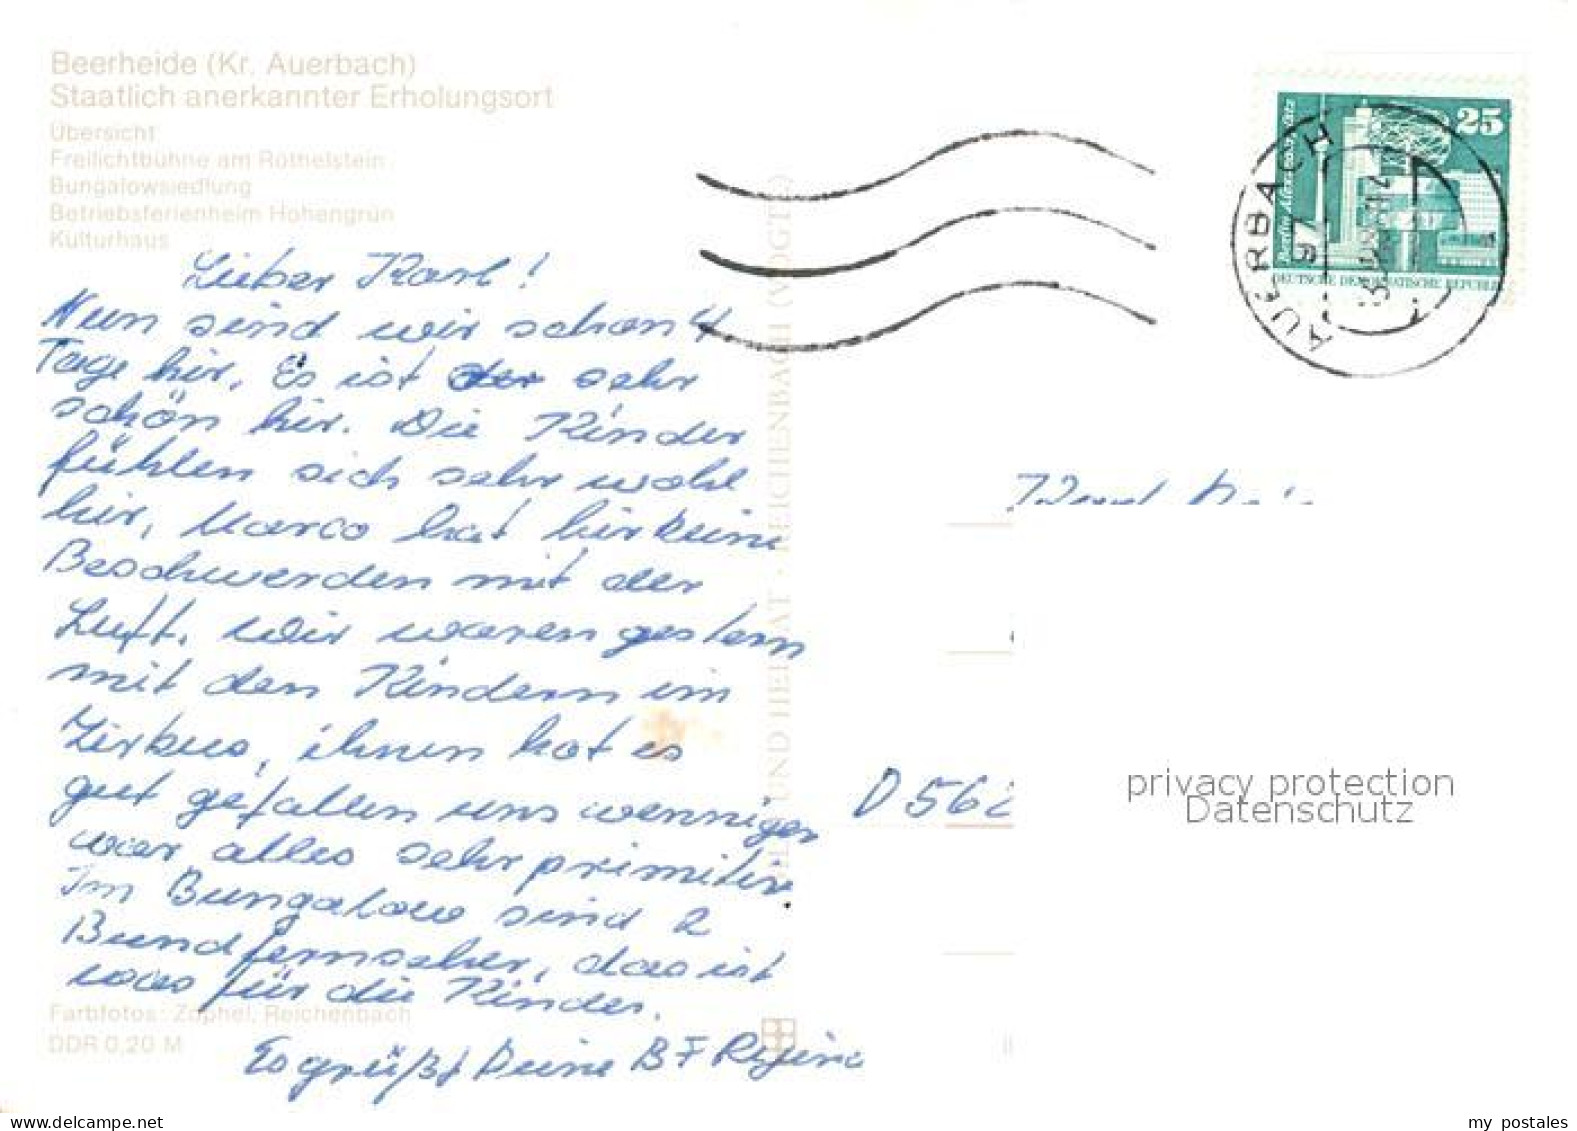 Beerheide (Kr. Auerbach)
Staatlich anerkannter Erholungsort
Übersicht
Freilichtbühne am Röthelstein
Bungalowsiedlung
Betriebsferienheim Hohengrün
Kulturhaus
Lieber Karl!
Nun sind wir schon 4
Tage hir. Es ist sehr
schön hir. Die Kinder
fühlen sich sehr wohl
hir, Marco hat hir keine
Beschwerden mit der
Luft. Wir waren gestern
mit den Kindern im
Zirkus, ihnen hat es
gut gefallen uns wenniger
war alles sehr primitiv
Im Bungalow sind 2
Bundfernseher, das ist
was für die Kinder.
Es grüßt Deine BF Regina
Farbfotos: Zöphel, Reichenbach
DDR 0,20 M
BILD UND HEIMAT · REICHENBACH (VOGTL)
25
Berlin Alexanderplatz
DEUTSCHE DEMOKRATISCHE REPUBLIK
AUERBACH
97
Karl
D 562
privacy protection
Datenschutz
my postales